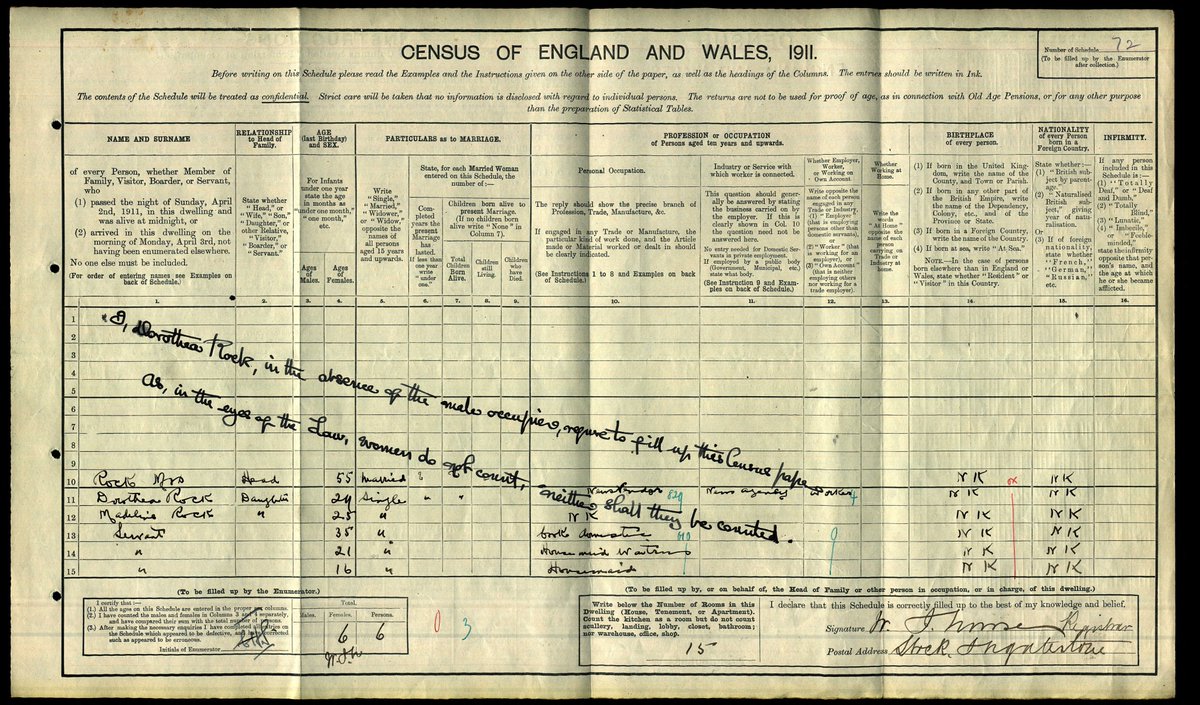 CENSUS OF ENGLAND AND WALES, 1911.
Number of Schedule 72
(To be filled up by the Enumerator
after collection.)
Before writing on this Schedule please read the Examples and the Instructions given on the other side of the paper, as well as the headings of the Columns. The entries should be written in Ink.
The contents of the Schedule will be treated as confidential. Strict care will be taken that no information is disclosed with regard to individual persons. The returns are not to be used for proof of age, as in connection with Old Age Pensions, or for any other purpose
than the preparation of Statistical Tables.
NAME AND SURNAME
of every Person, whether Member of
Family, Visitor, Boarder, or Servant,
who
(1) passed the night of Sunday, April
2nd, 1911, in this dwelling and
was alive at midnight, or
(2) arrived in this dwelling on the
morning of Monday, April 3rd, not
having been enumerated elsewhere.
No one else must be included.
(For order of entering names see Examples on
back of Schedule.)
1.
RELATIONSHIP
to Head of
Family.
State whether
"Head," or
"Wife," "Son,"
"Daughter," or
other Relative,
"Visitor,"
"Boarder," or
"Servant."
2.
AGE
(last Birthday)
and SEX.
For Infants
under one year
state the age
in months as
"under one month,"
"one month,"
etc.
Ages
of
Males.
Ages
of
Females.
3.
4.
PARTICULARS as to MARRIAGE.
Write
"Single,"
"Married,"
"Widower,"
or "Widow,"
opposite the
names of
all persons
aged 15 years
and upwards.
5.
State, for each Married Woman
entered on this Schedule, the
number of:—
Completed
years the
present
Marriage
has
lasted.
If less than
one year
write
"under
one."
6.
Children born alive to
present Marriage.
(If no children born
alive write "None" in
Column 7).
Total
Children
Born
Alive.
7.
Children
still
Living.
8.
Children
who
have
Died.
9.
PROFESSION or OCCUPATION
of Persons aged ten years and upwards.
Personal Occupation.
The reply should show the precise branch of
Profession, Trade, Manufacture, &c.
If engaged in any Trade or Manufacture, the
particular kind of work done, and the Article
made or Material worked or dealt in should
be clearly indicated.
(See Instructions 1 to 8 and Examples on back
of Schedule.)
10.
Industry or Service with
which worker is connected.
This question should generally
be answered by stating
the business carried on by
the employer. If this is
clearly shown in Col. 10
the question need not be
answered here.
No entry needed for Domestic Servants
in private employment.
If employed by a public body
(Government, Municipal, etc.)
state what body.
(See Instruction 9 and Examples
on back of Schedule.)
11.
Whether Employer,
Worker,
or Working on
Own Account.
Write opposite the
name of each person
engaged in any
Trade or Industry,
(1) "Employer" (that
is employing
persons other than
domestic servants),
or
(2) "Worker" (that
is working for an
employer), or
(3) "Own Account"
(that is neither
employing others
nor working for a
trade employer).
12.
Whether
Working at
Home.
Write the
words
"At Home"
opposite the
name of each
person
carrying on
Trade or
Industry at
home.
13.
BIRTHPLACE
of every person.
(1) If born in the United Kingdom,
write the name of the
County, and Town or Parish.
(2) If born in any other part of
the British Empire, write
the name of the Dependency,
Colony, etc., and of the
Province or State.
(3) If born in a Foreign Country,
write the name of the Country.
(4) If born at sea, write "At Sea."
NOTE.—In the case of persons
born elsewhere than in England or
Wales, state whether "Resident" or
"Visitor" in this Country.
14.
NATIONALITY
of every Person
born in a
Foreign Country.
State whether:—
(1) "British subject
by parentage."
(2) "Naturalised
British subject,"
giving
year of naturalisation.
Or
(3) If of foreign
nationality,
state whether
"French,"
"German,"
"Russian,"
etc.
15.
INFIRMITY.
If any person
included in this
Schedule is:—
(1) "Totally
Deaf," or "Deaf
and Dumb,"
(2) "Totally
Blind,"
(3) "Lunatic,"
(4) "Imbecile,"
or "Feeble-minded,"
state the infirmity
opposite that person's
name, and
the age at which
he or she became
afflicted.
16.
1
2
3
4
5
6
7
8
9
"I, Dorothea Rock, in the absence of the male occupier, refuse to fill up this Census paper
as, in the eyes of the Law, women do not count, neither shall they be counted.
10 Rock Mrs Head 55 Married N K N K
11 Dorothea Rock Daughter 29 Single " " Newsvendor 829 News agency Worker N K N K
12 Madeline Rock " 25 " N K N K N K
13 Servant 35 " Cook domestic N K N K
14 " 21 " Housemaid Waitress N K N K
15 " 16 " Housemaid N K N K
(To be filled up by the Enumerator.)
I certify that:—
(1.) All the ages on this Schedule are entered in the proper sex columns.
(2.) I have counted the males and females in Columns 3 and 4 separately,
and have compared their sum with the total number of persons.
(3.) After making the necessary enquiries I have completed all entries on
the Schedule which appeared to be defective, and have corrected
such as appeared to be erroneous.
Initials of Enumerator
Total.
Males. Females. Persons.
6 6
0 3
Write below the Number of Rooms in this
Dwelling (House, Tenement, or Apartment).
Count the kitchen as a room but do not count
scullery, landing, lobby, closet, bathroom;
nor warehouse, office, shop.
15
(To be filled up by, or on behalf of, the Head of Family or other person in occupation, or in charge, of this dwelling.)
I declare that this Schedule is correctly filled up to the best of my knowledge and belief.
Signature Registrar
Postal Address Stock, Ingatestone